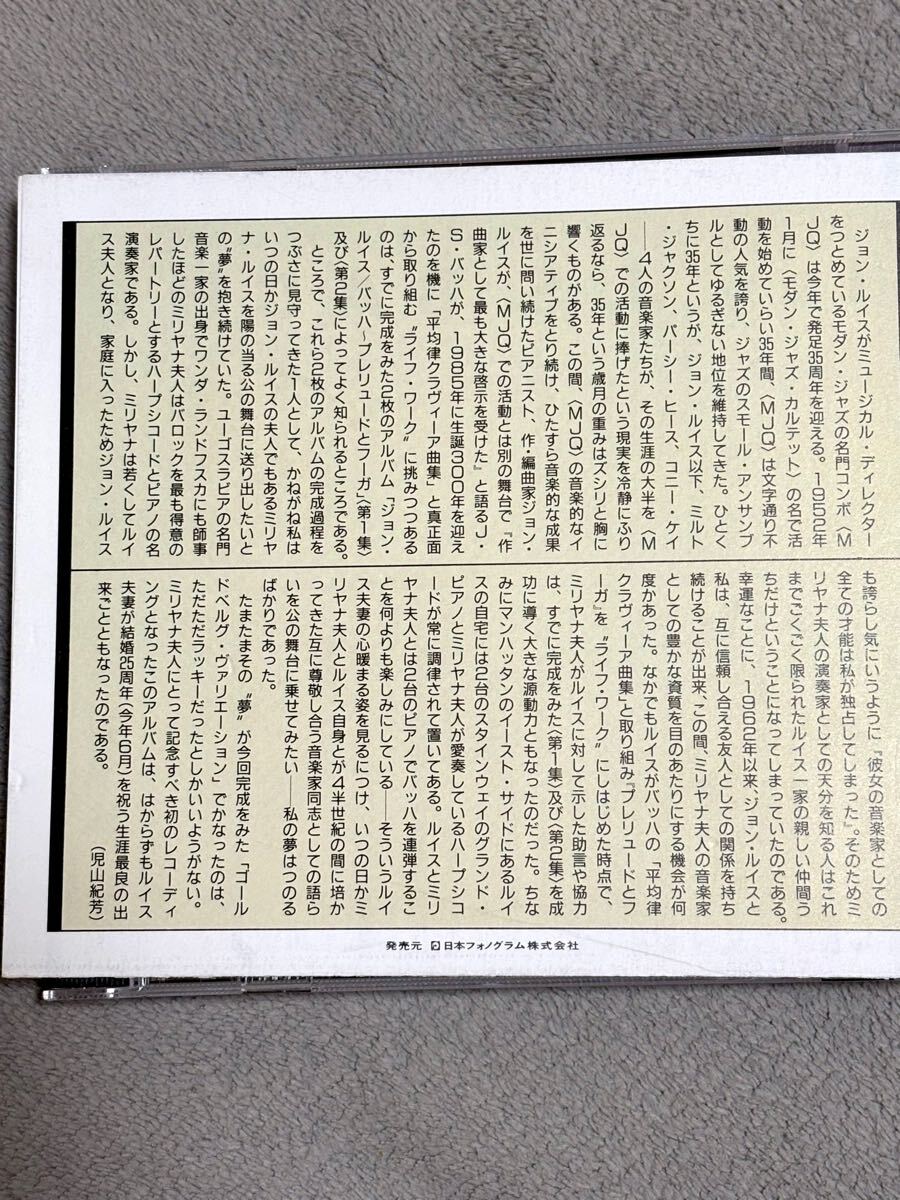 ジョン・ルイスがミュージカル・ディレクター
をつとめているモダン・ジャズの名門コンボ〈M
JQ〉は今年で発足35周年を迎える。1952年
1月に〈モダン・ジャズ・カルテット〉の名で活
動を始めていらい35年間、〈MJQ〉は文字通り不
動の人気を誇り、ジャズのスモール・アンサンブ
ルとしてゆるぎない地位を維持してきた。ひとく
ちに35年というが、ジョン・ルイス以下、ミルト
・ジャクソン、パーシー・ヒース、コニー・ケイ
――4人の音楽家たちが、その生涯の大半を〈M
JQ〉での活動に捧げたという現実を冷静にふり
返るなら、35年という歳月の重みはズシリと胸に
響くものがある。この間、〈MJQ〉の音楽的なイ
ニシアティブをとり続け、ひたすら音楽的な成果
を世に問い続けたピアニスト、作・編曲家ジョン・
ルイスが、〈MJQ〉での活動とは別の舞台で『作
曲家として最も大きな啓示を受けた』と語るJ・
S・バッハが、1985年に生誕300年を迎え
たのを機に「平均律クラヴィーア曲集」と真正面
から取り組む〝ライフ・ワーク〟に挑みつつある
のは、すでに完成をみた2枚のアルバム「ジョン・
ルイス/バッハ・プレリュードとフーガ」〈第1集〉
及び〈第2集〉によってよく知られるところである。
ところで、これら2枚のアルバムの完成過程を
つぶさに見守ってきた1人として、かねがね私は
いつの日かジョン・ルイスの夫人でもあるミリヤ
ナ・ルイスを陽の当る公の舞台に送り出したいと
の〝夢〟を抱き続けていた。ユーゴスラビアの名門
音楽一家の出身でワンダ・ランドフスカにも師事
したほどのミリヤナ夫人はバロックを最も得意の
レパートリーとするハープシコードとピアノの名
演奏家である。しかし、ミリヤナは若くしてルイ
ス夫人となり、家庭に入ったためジョン・ルイス
も誇らし気にいうように『彼女の音楽家としての
全ての才能は私が独占してしまった』。そのためミ
リヤナ夫人の演奏家としての天分を知る人はこれ
までごくごく限られたルイス一家の親しい仲間う
ちだけということになってしまっていたのである。
幸運なことに、1962年以来、ジョン・ルイスと
私は、互に信頼し合える友人としての関係を持ち
続けることが出来、この間、ミリヤナ夫人の音楽家
としての豊かな資質を目のあたりにする機会が何
度かあった。なかでもルイスがバッハの「平均律
クラヴィーア曲集」と取り組み『プレリュードとフ
ーガ』を〝ライフ・ワーク〟にしはじめた時点で、
ミリヤナ夫人がルイスに対して示した助言や協力
は、すでに完成をみた〈第1集〉及び〈第2集〉を成
功に導く大きな源動力ともなったのだった。ちな
みにマンハッタンのイースト・サイドにあるルイ
スの自宅には2台のスタインウェイのグランド・
ピアノとミリヤナ夫人が愛奏しているハープシコ
ードが常に調律されて置いてある。ルイスとミリ
ヤナ夫人とは2台のピアノでバッハを連弾するこ
とを何よりも楽しみにしている――そういうルイ
ス夫妻の心暖まる姿を見るにつけ、いつの日かミ
リヤナ夫人とルイス自身とが4半世紀の間に培か
ってきた互に尊敬し合う音楽家同志としての語ら
いを公の舞台に乗せてみたい――私の夢はつのる
ばかりであった。
たまたまその〝夢〟が今回完成をみた「ゴール
ドベルグ・ヴァリエーション」でかなったのは、
ただただラッキーだったとしかいいようがない。
ミリヤナ夫人にとって記念すべき初のレコーディ
ングとなったこのアルバムは、はからずもルイス
夫妻が結婚25周年(今年6月)を祝う生涯最良の出
来ごとともなったのである。
(児山紀芳)
発売元 日本フォノグラム株式会社